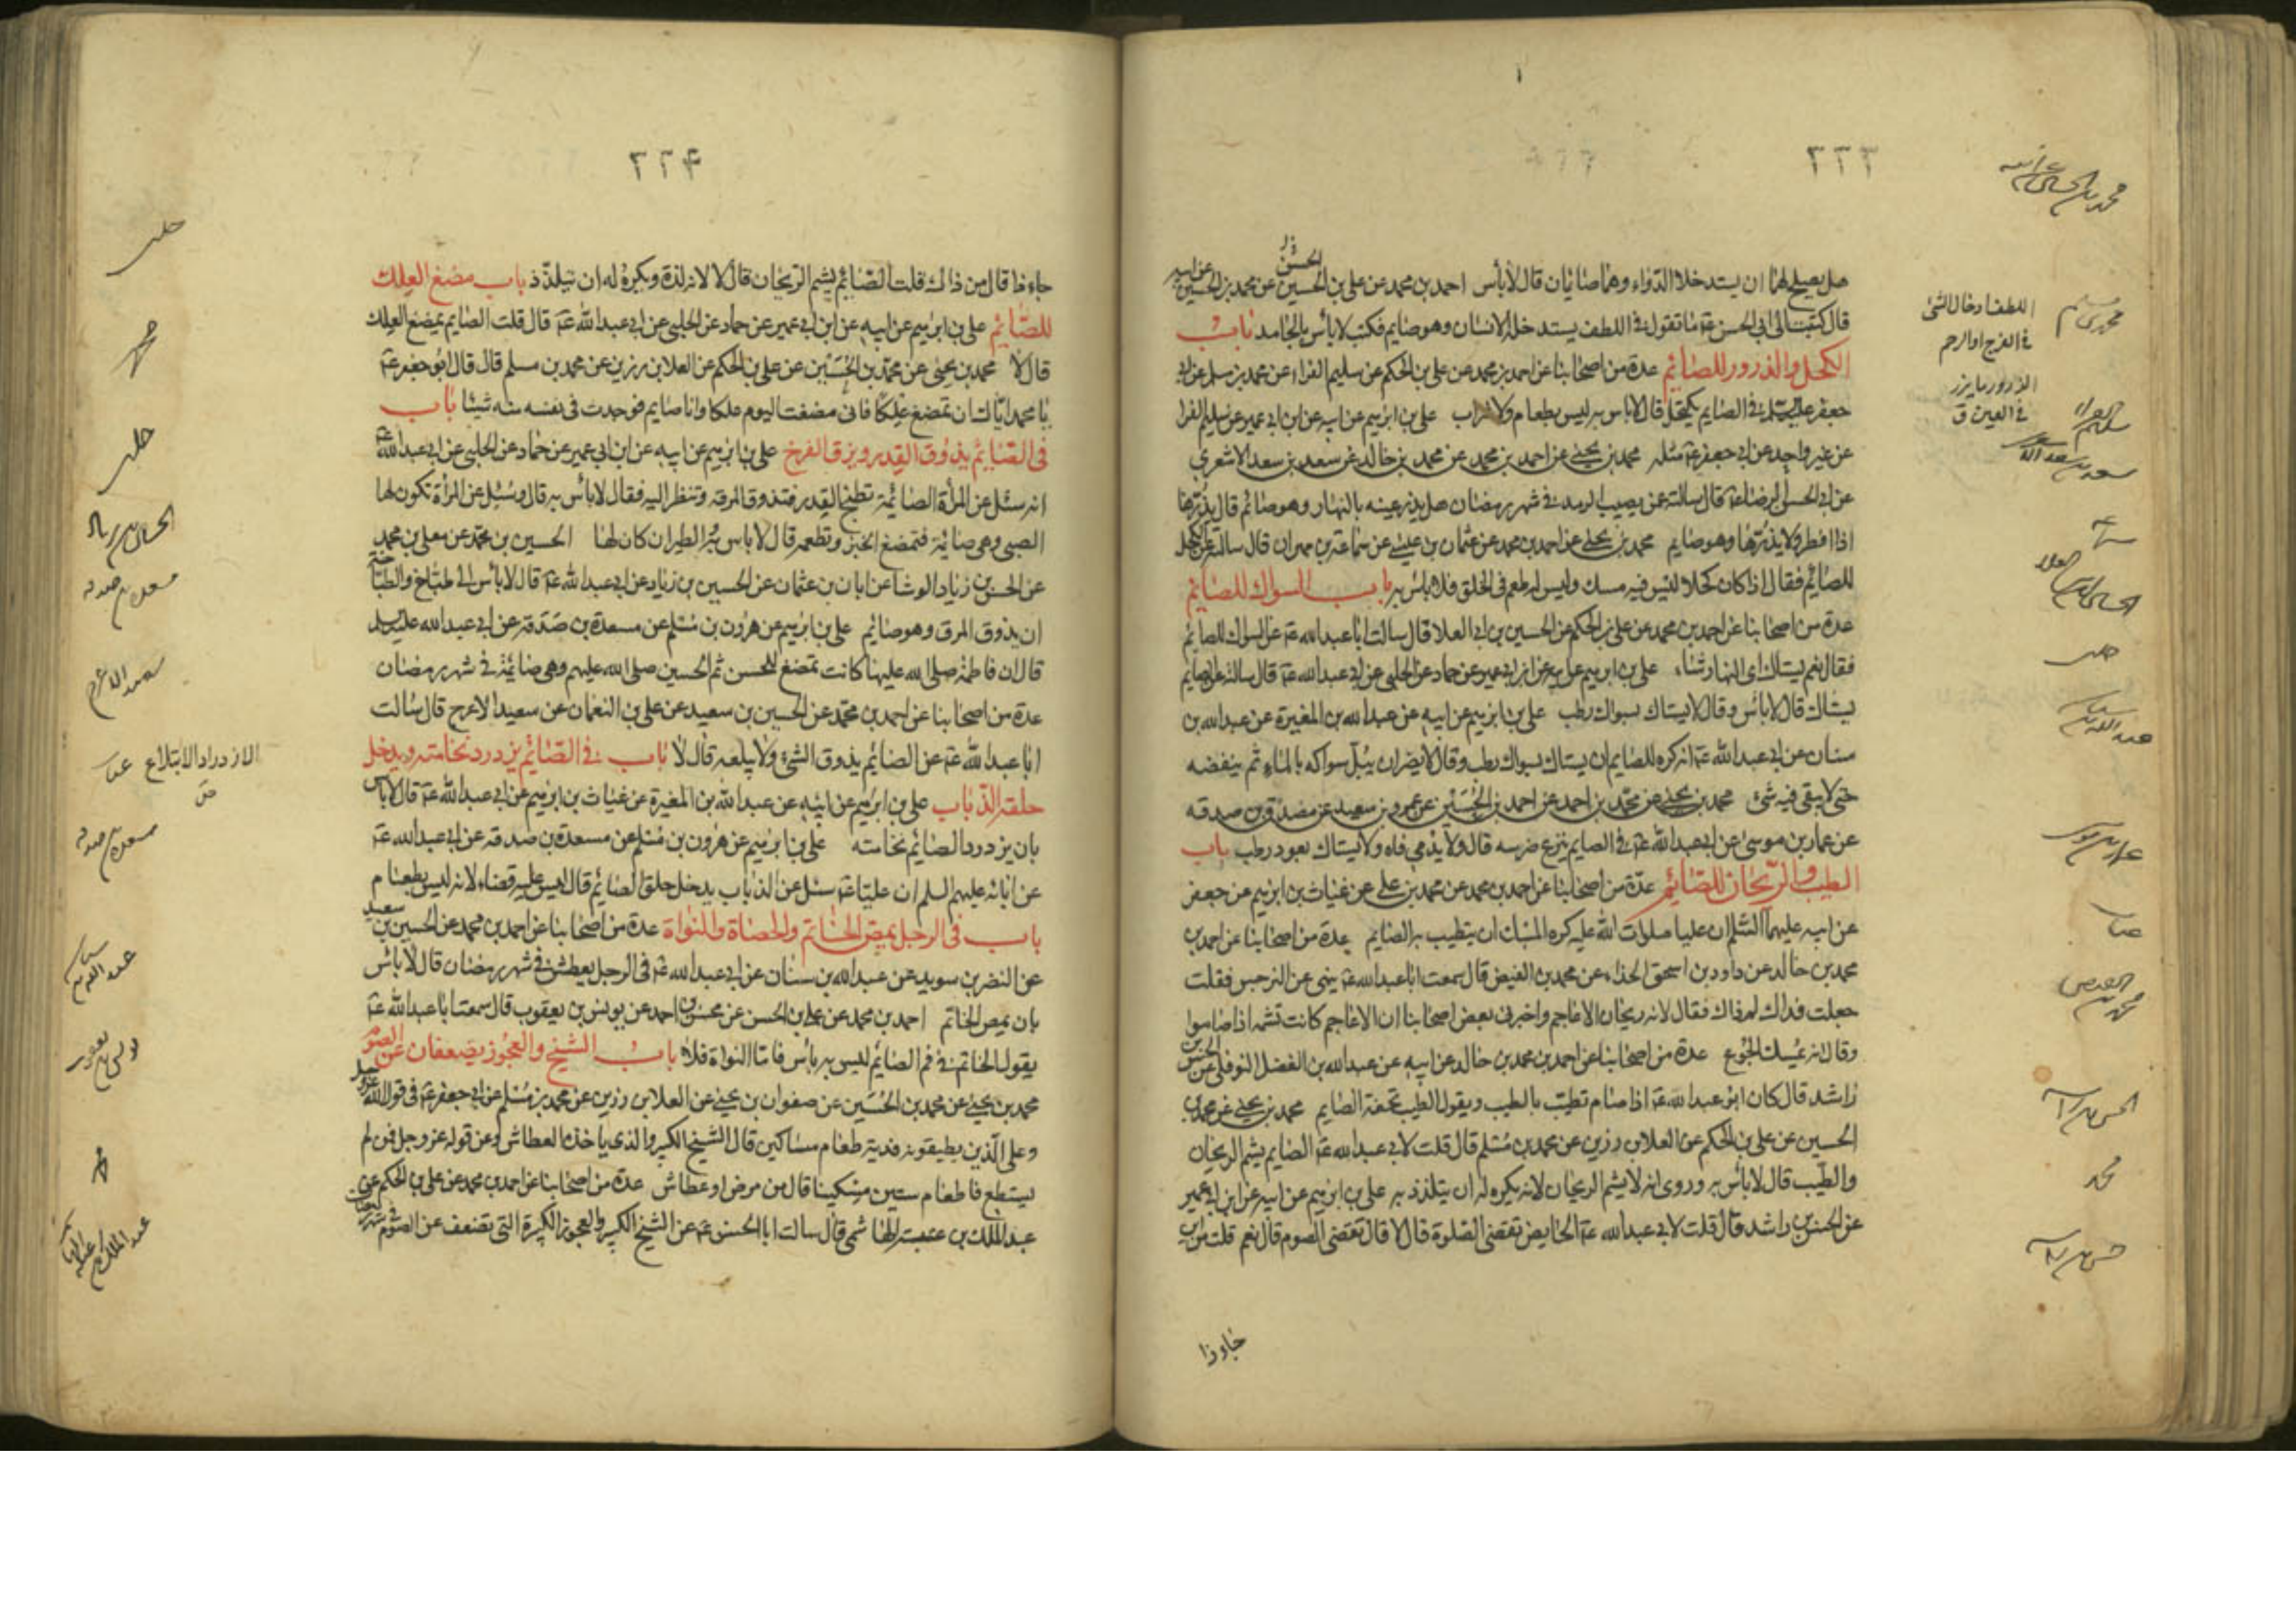 ٢٢٣
هل يصلح لهما ان يستدخلا الدواء وهما صائمان قال لا بأس احمد بن محمد عن على بن الحسين عن محمد بن الحسين عن ابيه
قال كتبت الى ابى الحسن عۃ ما تقول فى اللطف يستدخله الانسان وهو صايم فكتب لا بأس بالجامد باب
الكحل والذرور للصائم عدة من اصحابنا عن احمد بن محمد عن على بن الحكم عن سليم الفراء عن محمد بن مسلم عن ابى
جعفر عليه السلم فى الصايم يكتحل قال لا باس به ليس بطعام ولا شراب على بن ابرهيم عن ابيه عن ابن ابى عمير عن سليم الفرا
عن غير واحد عن ابى جعفر عۃ مثله محمد بن يحيى عن احمد بن محمد عن محمد بن خالد عن سعد بن سعد الاشعرى
عن ابى الحسن الرضا عۃ قال سالته عمن يصيب الرمد فى شهر رمضان هل يذر عينه بالنهار وهو صائم قال يذرها
اذا افطر ولا يذرها وهو صايم محمد بن يحيى عن احمد بن محمد عن عثمان بن عيسى عن سماعة بن مهران قال سالته عن الكحل
للصائم فقال اذا كان كحلا ليس فيه مسك وليس له طعم فى الحلق فلا باس به باب السواك للصائم
عدة من اصحابنا عن احمد بن محمد عن على بن الحكم عن الحسين بن ابى العلا قال سالت ابا عبد الله عۃ عن السواك للصائم
فقال نعم يستاك اى النهار شاء على بن ابرهيم عن ابيه عن ابن ابى عمير عن حماد عن الحلبى عن ابى عبد الله عۃ قال سالته عن الصايم
يستاك قال لا بأس وقال لا يستاك بسواك رطب على بن ابرهيم عن ابيه عن عبد الله بن المغيرة عن عبد الله بن
سنان عن ابى عبد الله عۃ انه كره للصايم ان يستاك بسواك رطب وقال لا يضر ان يبل سواكه بالماء ثم ينفضه
حتى لا يبقى فيه شئ محمد بن يحيى عن محمد بن احمد عن احمد بن الحسين عن عمرو بن سعيد عن مصدق بن صدقه
عن عمار بن موسى عن ابى عبد الله عۃ فى الصايم ينزع ضرسه قال ولا يدمى فاه ولا يستاك بعود رطب باب
الطيب والريحان للصائم عدة من اصحابنا عن احمد بن محمد عن محمد بن على عن غياث بن ابرهيم عن جعفر
عن ابيه عليهما السلم ان عليا صلوات الله عليه كره المسك ان يتطيب به الصايم عدة من اصحابنا عن احمد بن
محمد بن خالد عن داود بن اسحق الحذاء عن محمد بن الفيض قال سمعت ابا عبد الله عۃ ينهى عن النرجس فقلت
جعلت فداك لم ذاك فقال لانه ريحان الاعاجم واخبرنى بعض اصحابنا ان الاعاجم كانت تشمه اذا صاموا
وقال انه يمسك الجوع عدة من اصحابنا عن احمد بن محمد بن خالد عن ابيه عن عبد الله بن الفضل النوفلى عن الحسن بن
راشد قال كان ابو عبد الله عۃ اذا صام تطيب بالطيب ويقول الطيب تحفة الصايم محمد بن يحيى عن محمد بن
الحسين عن على بن الحكم عن العلا بن رزين عن محمد بن مسلم قال قلت لابى عبد الله عۃ الصايم يشم الريحان
والطيب قال لا بأس به وروى انه لا يشم الريحان لانه يكره له ان يتلذذ به على بن ابرهيم عن ابيه عن ابن ابى عمير
عن الحسن بن راشد قال قلت لابى عبد الله عۃ الحايض تقضى الصلوة قال لا قال تقضى الصوم قال نعم قلت من اين
جاء ذا
محمد بن مسلم
اللطف ادخال الشئ
فى الفرج او الرحم
الذرور ما يذر
فى العين ق
سليم الفراء
سعد بن سعد
الحسين بن ابى العلا
عبد الله بن سنان
عمار بن موسى
غياث
محمد بن الفيض
الحسن بن راشد
محمد
حسن بن راشد
٢٢٤
جاء ذا قال من ذاك قلت الصائم يشم الريحان قال لا لانه لذة ويكره له ان يتلذذ باب مضغ العلك
للصائم على بن ابرهيم عن ابيه عن ابن ابى عمير عن حماد عن الحلبى عن ابى عبد الله عۃ قال قلت الصايم يمضغ العلك
قال لا محمد بن يحيى عن محمد بن الحسين عن على بن الحكم عن العلا بن رزين عن محمد بن مسلم قال قال ابو جعفر عۃ
يا محمد اياك ان تمضغ علكا فانى مضغت اليوم علكا وانا صايم فوجدت فى نفسى منه شيئا باب
فى الصائم يذوق القدر ويزق الفرخ على بن ابرهيم عن ابيه عن ابن ابى عمير عن حماد عن الحلبى عن ابى عبد الله عۃ
انه سئل عن المرأة الصائمة تطبخ القدر فتذوق المرقة وتنظر اليه فقال لا بأس به قال وسئل عن المرأة تكون لها
الصبى وهى صائمة فتمضغ الخبز وتطعمه قال لا باس به والطير ان كان لها الحسين بن محمد عن معلى بن محمد
عن الحسن بن زياد الوشا عن ابان بن عثمان عن الحسين بن زياد عن ابى عبد الله عۃ قال لا بأس للطباخ والطباخة
ان يذوق المرق وهو صائم على بن ابرهيم عن هرون بن مسلم عن مسعدة بن صدقة عن ابى عبد الله عليه السلم
قال ان فاطمة صلى الله عليها كانت تمضغ للحسن ثم الحسين صلى الله عليهم وهى صائمة فى شهر رمضان
عدة من اصحابنا عن احمد بن محمد عن الحسين بن سعيد عن على بن النعمان عن سعيد الاعرج قال سالت
ابا عبد الله عۃ عن الصايم يذوق الشئ ولا يبلعه قال لا باب فى الصائم يزدرد نخامته ويدخل
حلقه الذباب على بن ابرهيم عن ابيه عن عبد الله بن المغيرة عن غياث بن ابرهيم عن ابى عبد الله عۃ قال لا باس
بان يزدرد الصائم نخامته على بن ابرهيم عن هرون بن مسلم عن مسعدة بن صدقه عن ابى عبد الله عۃ
عن ابائه عليهم السلم ان عليا عۃ سئل عن الذباب يدخل حلق الصائم قال ليس عليه قضاء لانه ليس بطعام
باب فى الرجل يمص الخاتم والحصاة والنواة عدة من اصحابنا عن احمد بن محمد عن الحسين بن سعيد
عن النضر بن سويد عن عبد الله بن سنان عن ابى عبد الله عۃ فى الرجل يعطش فى شهر رمضان قال لا باس
بان يمص الخاتم احمد بن محمد عن على بن الحسن عن محسن بن احمد عن يونس بن يعقوب قال سمعت ابا عبد الله عۃ
يقول الخاتم فى فم الصايم ليس به باس فاما النواة فلا باب الشيخ والعجوز يضعفان عن الصوم
محمد بن يحيى عن محمد بن الحسين عن صفوان بن يحيى عن العلا بن رزين عن محمد بن مسلم عن ابى جعفر عۃ فى قول الله عز وجل
وعلى الذين يطيقونه فدية طعام مساكين قال الشيخ الكبير والذى ياخذه العطاش وعن قوله عز وجل فمن لم
يستطع فاطعام ستين مسكينا قال من مرض او عطاش عدة من اصحابنا عن احمد بن محمد عن على بن الحكم عن
عبد الملك بن عتبة الهاشمى قال سالت ابا الحسن عۃ عن الشيخ الكبير والعجوز الكبيرة التى تضعف عن الصوم فى شهر رمضان
حلبى
حلبى
الحسين بن زياد
مسعدة بن صدقه
سعيد الاعرج
الازدراد الابتلاع
ص
غياث
مسعدة بن صدقه
عبد الله بن سنان
يونس بن يعقوب
عبد الملك بن عتبة